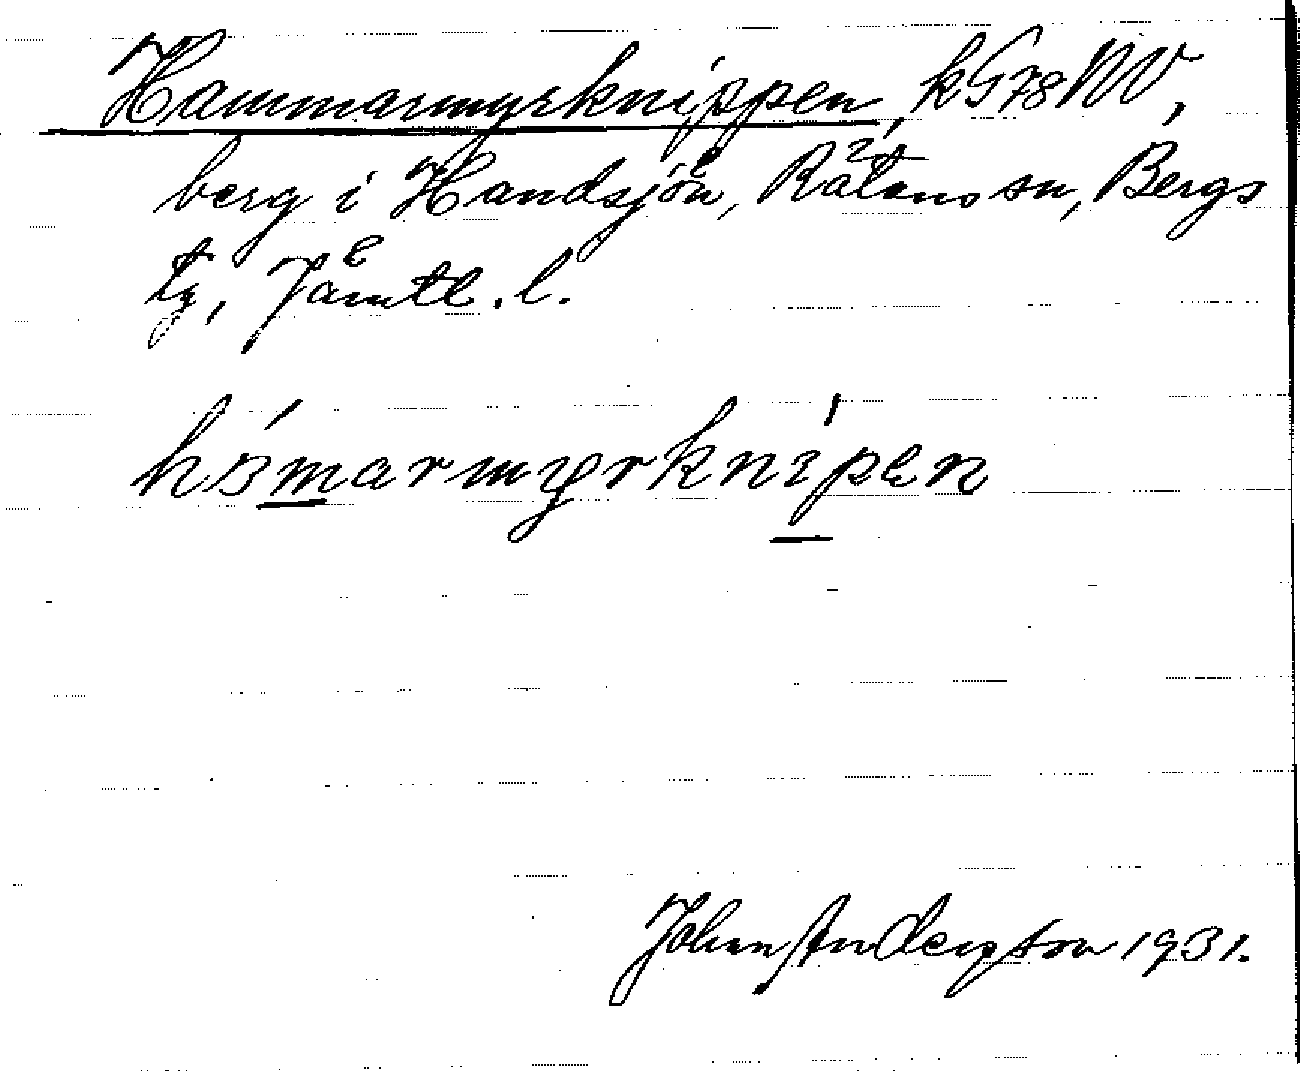 Hammarmyrknippen, kG78NV,
berg i Handsjön, Rätans sn, Bergs
tg, Jämtl. l.
hamarmyrknipen
Johan Andersson 1931.